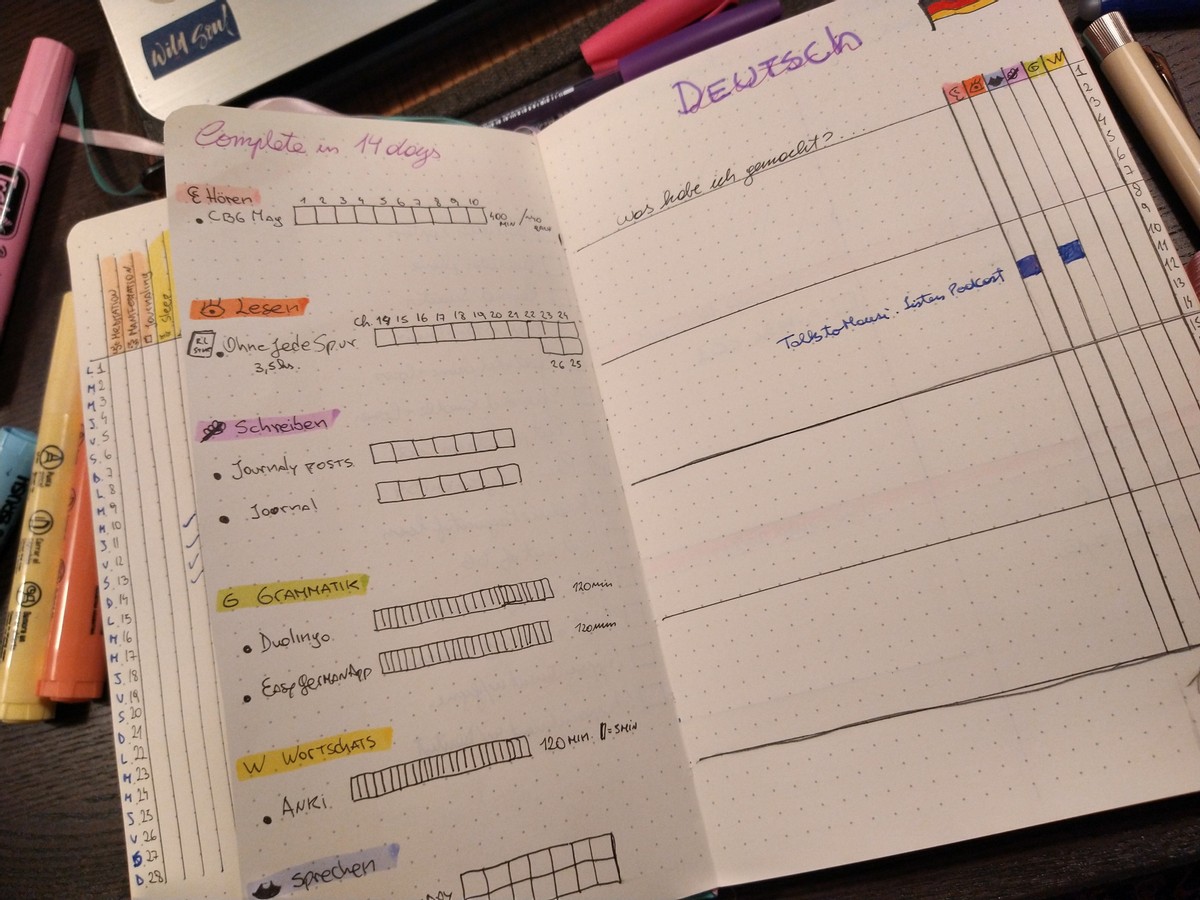 Wild Soul
Complete in 14 days
Hören
1 2 3 4 5 6 7 8 9 10
• CBG May
400 min
Lesen
Ch. 14 15 16 17 18 19 20 21 22 23 24
• Ohne Jede Spur
3,5 hs.
26 25
Schreiben
• Journaly posts
• Journal
G Grammatik
• Duolingo 120min
• EasyGermanApp 120min
W Wortschats
• Anki 120 min = 5min
Sprechen
Deutsch
was habe ich gemacht?....
G W
1
2
3
4
5
6
7
8
9
10
11
12
13
14
15
Talk to Mausi. Listen Podcast
Meditation
Manifestation
Journaling
Sleep
L 1
M 2
M 3
J 4
V 5
S 6
D 7
L 8
M 9
M 10
J 11
V 12
S 13
D 14
L 15
M 16
M 17
J 18
V 19
S 20
D 21
L 22
M 23
M 24
J 25
V 26
S 27
D 28